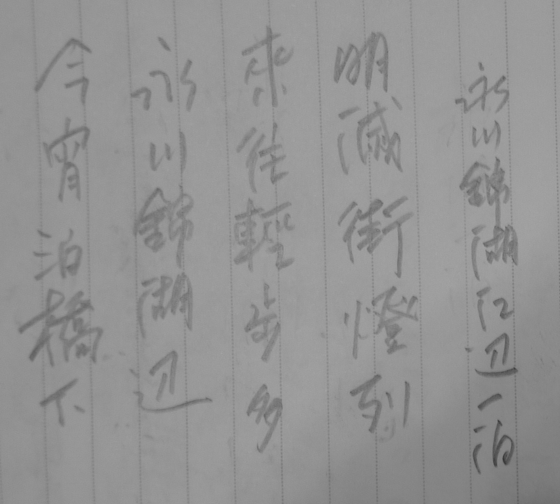 永川錦湖江辺一泊
明滅街燈列
來往輕步多
永川錦湖辺
今宵泊橋下